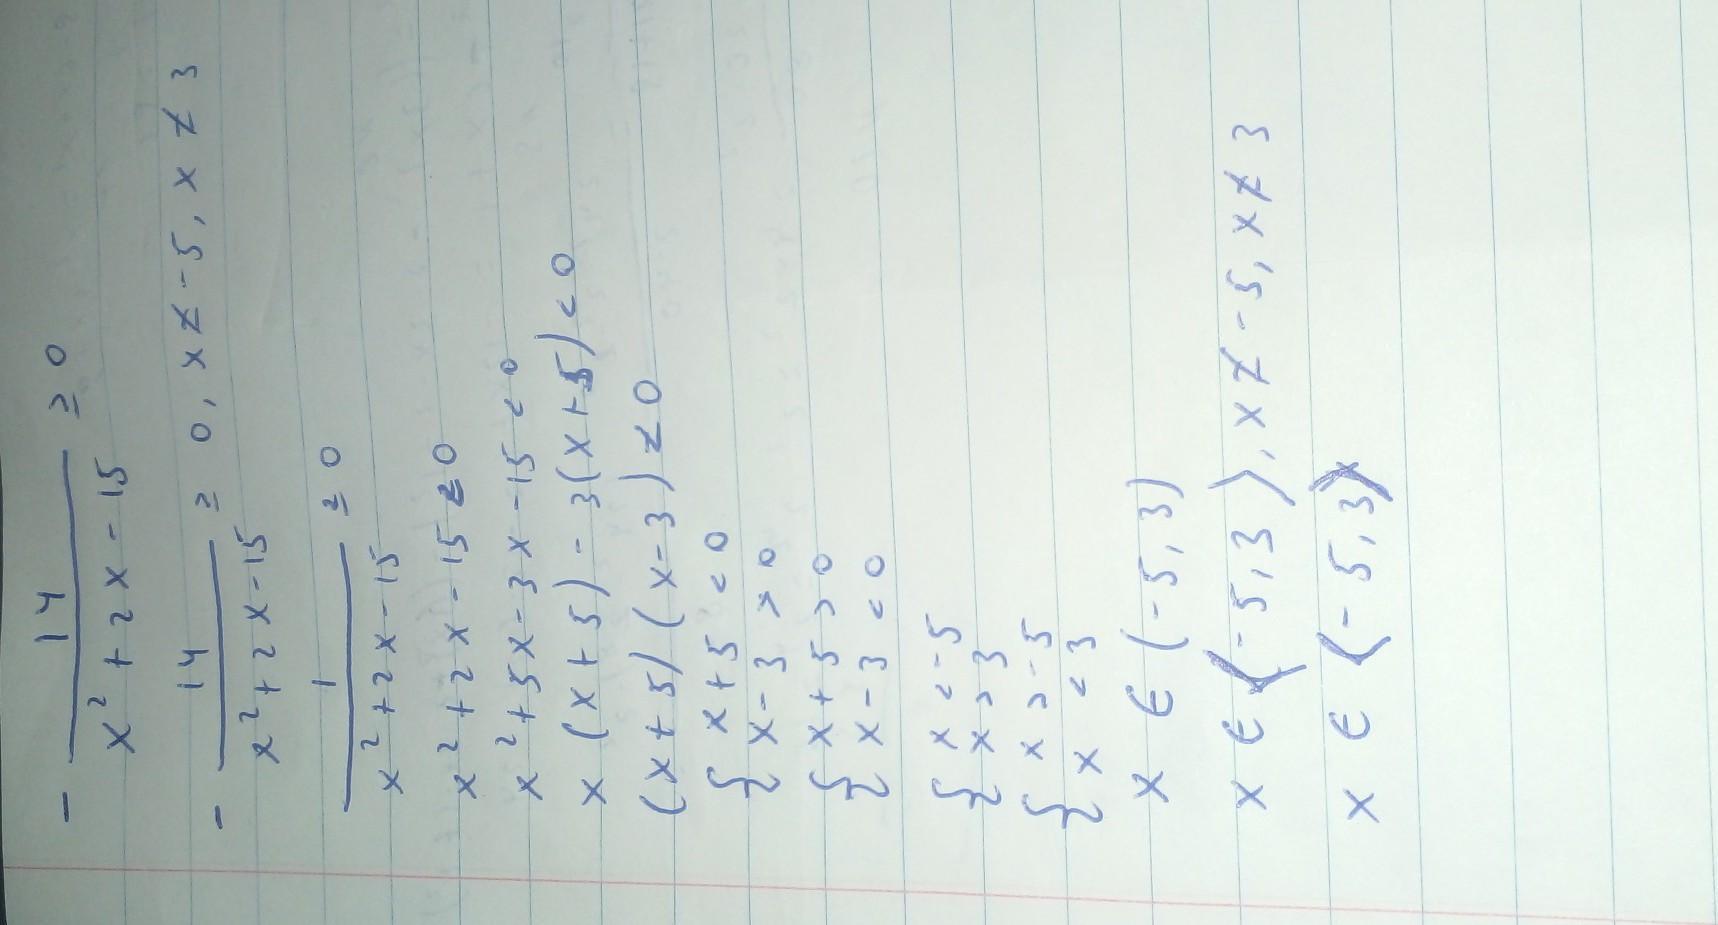 - 14/(x² + 2x - 15) ≥ 0
- 14/(x² + 2x - 15) ≥ 0, x ≠ -5, x ≠ 3
1/(x² + 2x - 15) ≤ 0
x² + 2x - 15 < 0
x² + 5x - 3x - 15 < 0
x (x + 5) - 3(x + 5) < 0
(x + 5) (x - 3) < 0
{ x + 5 < 0
{ x - 3 > 0
{ x + 5 > 0
{ x - 3 < 0
{ x < -5
{ x > 3
{ x > -5
{ x < 3
x ∈ (-5, 3)
x ∈ ⟨-5, 3⟩, x ≠ -5, x ≠ 3
x ∈ ⟨-5, 3⟩